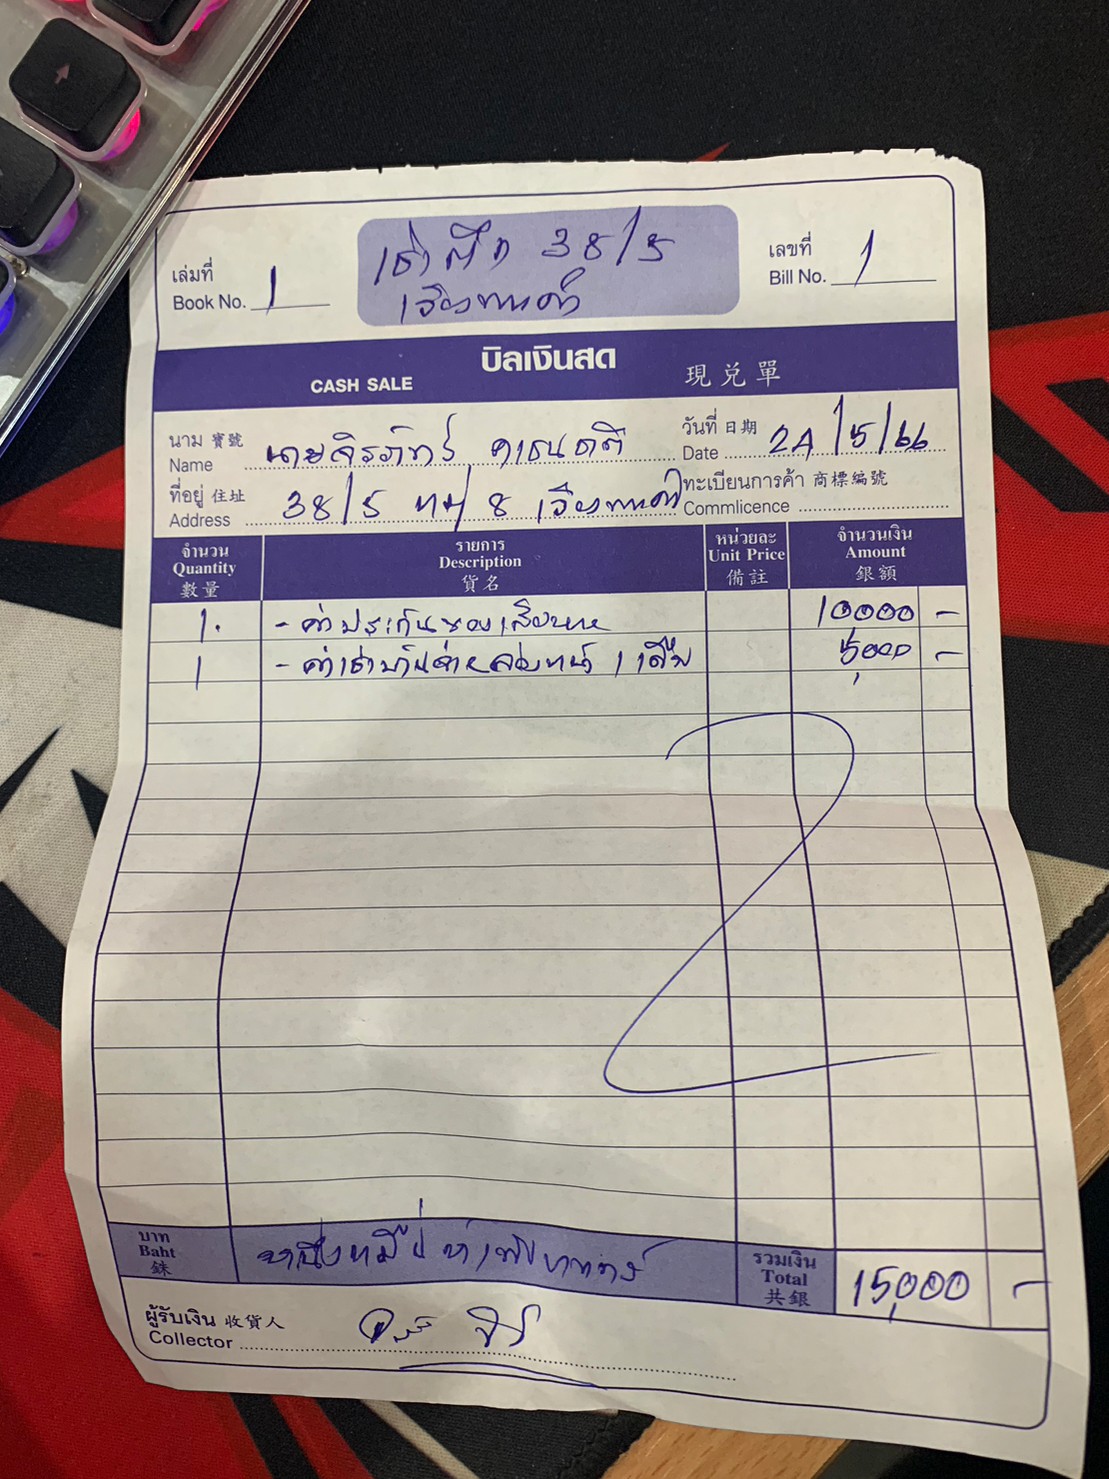 เล่มที่
Book No. 1
เช่าตึก 38/5
เวียงพางคำ
เลขที่
Bill No. 1
บิลเงินสด
CASH SALE
現兌單
นาม 寶號
Name นายจิรภัทร์
วันที่ 日期
Date 24/5/66
ที่อยู่ 住址
Address 38/5 หมู่ 8 เวียงพางคำ
ทะเบียนการค้า 商標編號
Commlicence
จำนวน
Quantity
數量
รายการ
Description
貨名
หน่วยละ
Unit Price
備註
จำนวนเงิน
Amount
銀額
1. - ค่าประกันของเสียหาย 10000 -
1 - ค่าเช่าบ้านล่วงหน้า 1 เดือน 5000 -
บาท
Baht
銖
หนึ่งหมื่นห้าพันบาท
รวมเงิน
Total
共銀
15,000 -
ผู้รับเงิน 收貨人
Collector